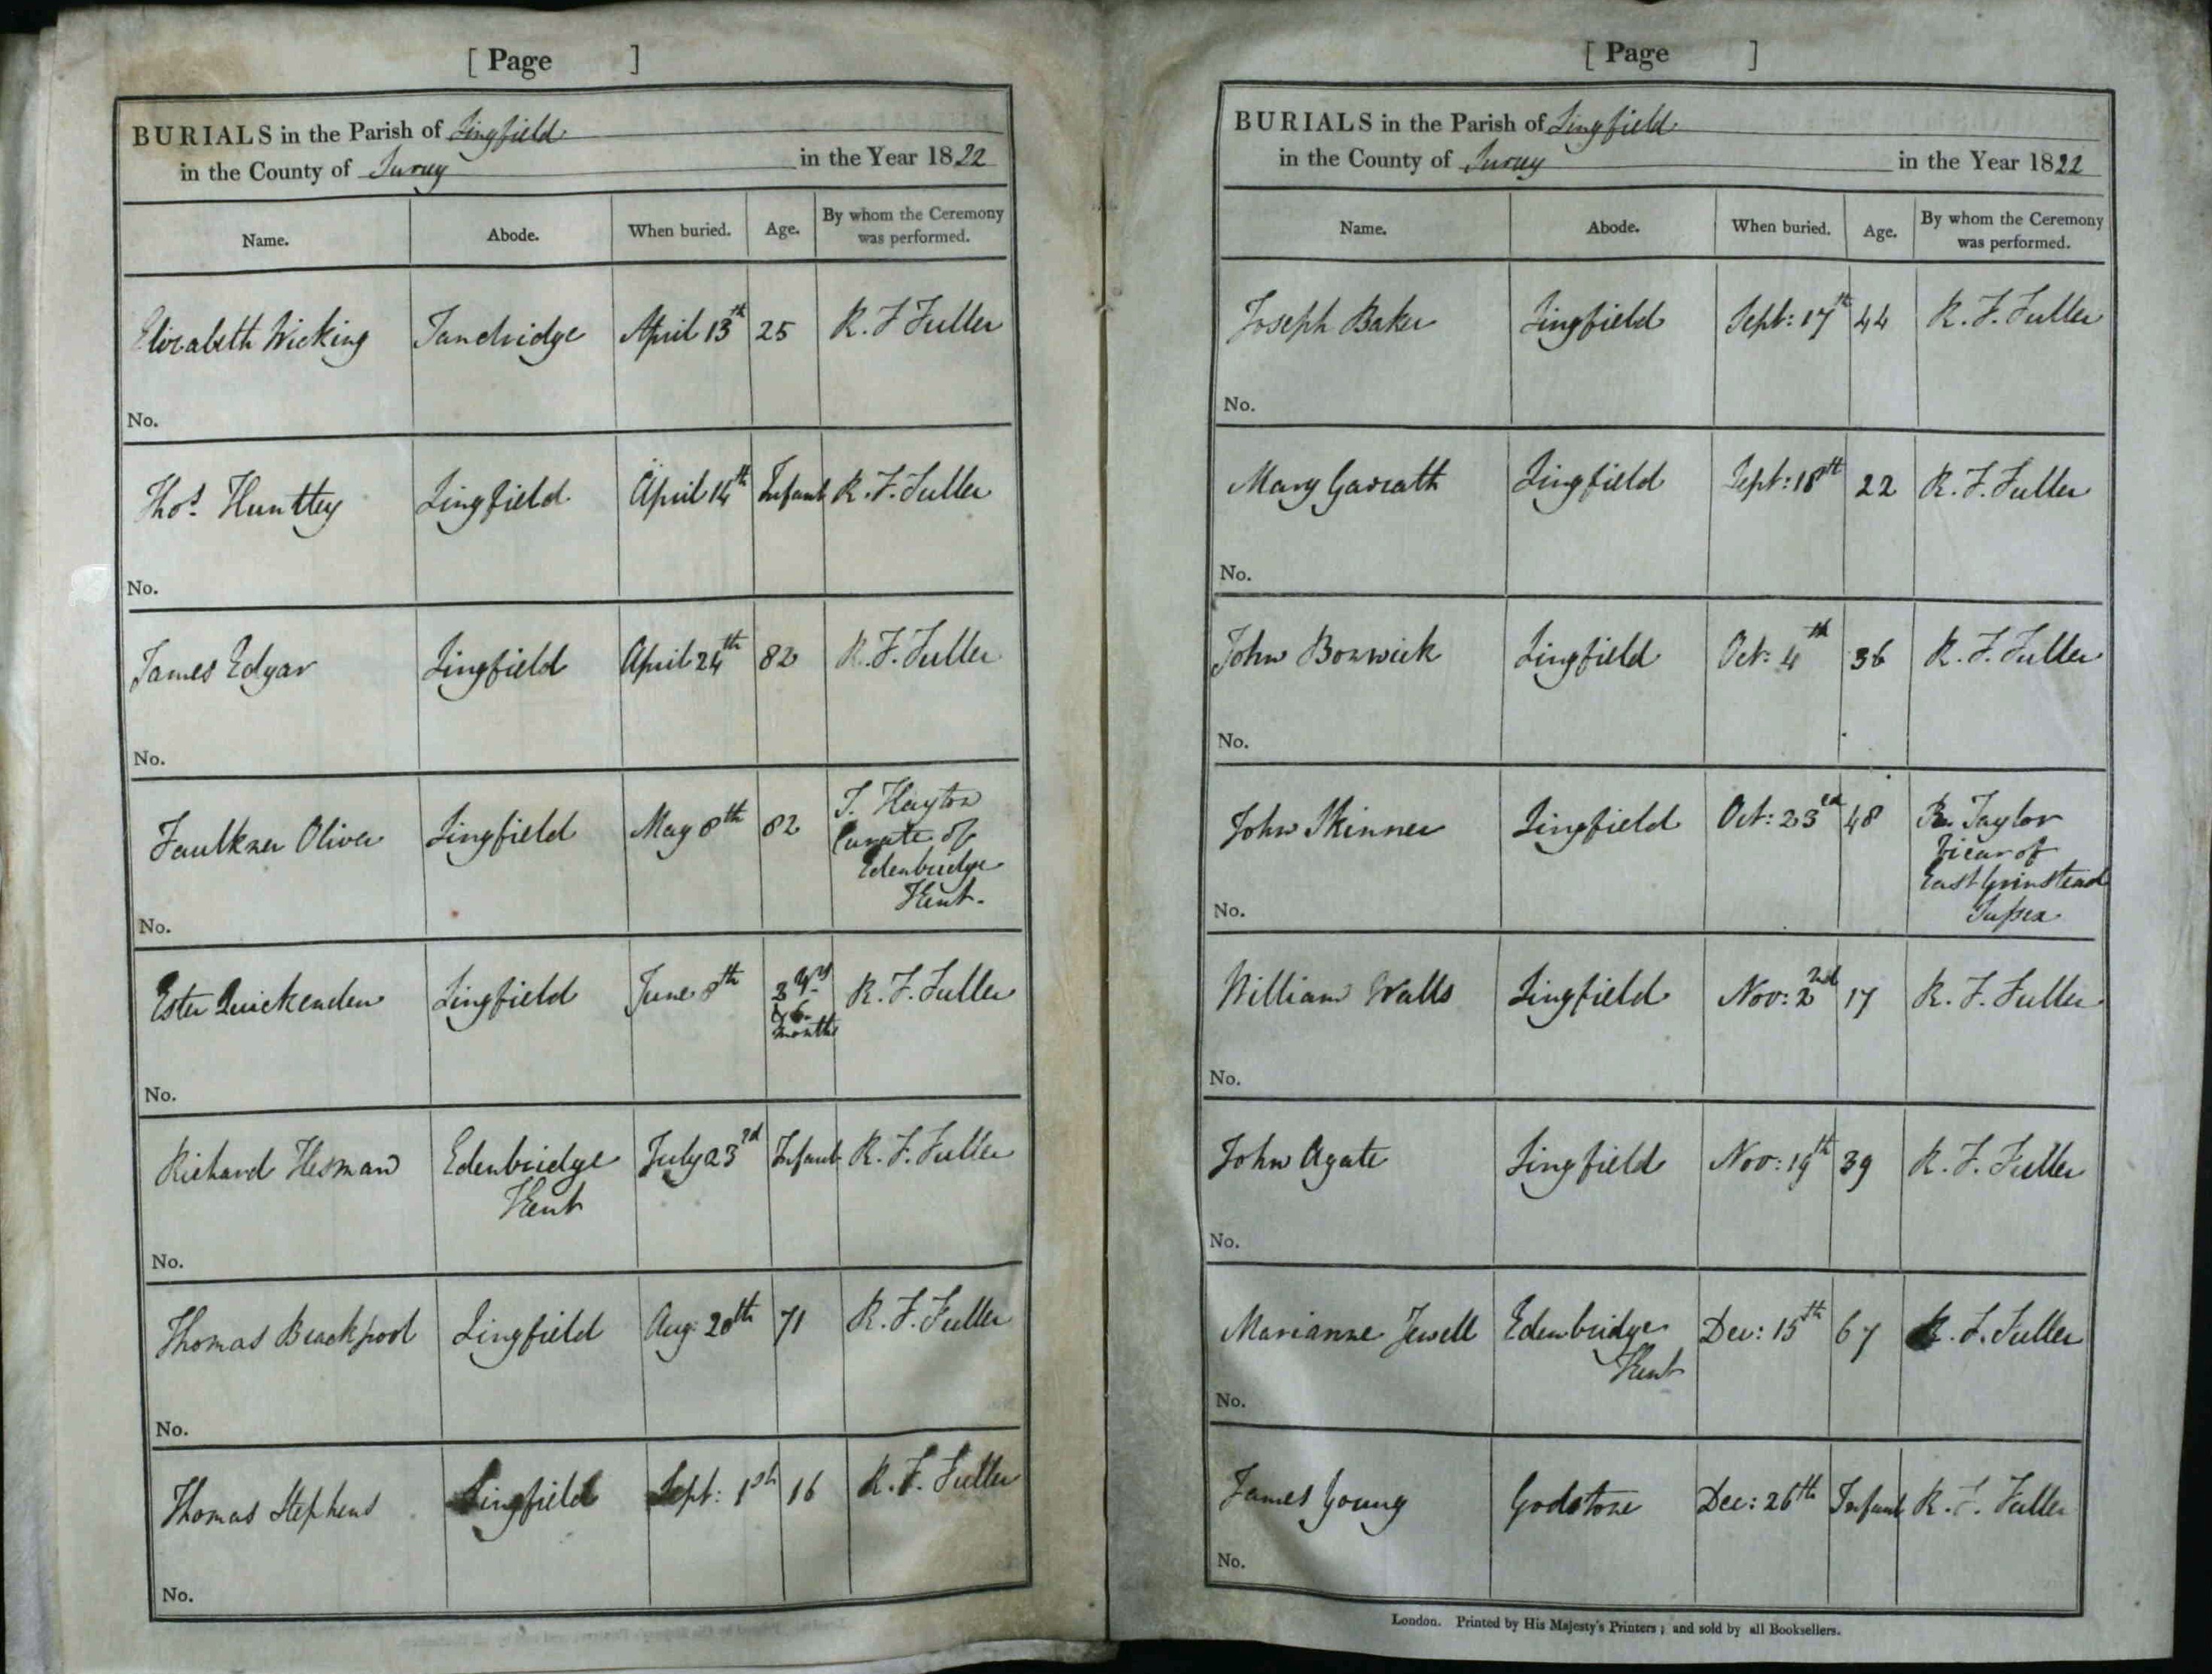 [ Page ]
BURIALS in the Parish of Lingfield
in the County of Surrey in the Year 1822
Name. Abode. When buried. Age. By whom the Ceremony was performed.
Elizabeth Wicking Tandridge April 13th 25 R. F. Fuller
No.
Thos. Huntley Lingfield April 14th Infant R. F. Fuller
No.
James Edgar Lingfield April 24th 82 R. F. Fuller
No.
Faulkner Oliver Lingfield May 8th 82 T. Hayton
Curate of
Edenbridge
Kent.
No.
Ester Quickenden Lingfield June 8th 3 Yrs R. F. Fuller
& 6
months
No.
Richard Hesman Edenbridge July 23rd Infant R. F. Fuller
Kent
No.
Thomas Blackpool Lingfield Aug: 20th 71 R. F. Fuller
No.
Thomas Stephens Lingfield Sept: 1st 16 R. F. Fuller
No.
[ Page ]
BURIALS in the Parish of Lingfield
in the County of Surrey in the Year 1822
Name. Abode. When buried. Age. By whom the Ceremony was performed.
Joseph Baker Lingfield Sept: 17th 44 R. F. Fuller
No.
Mary Garrath Lingfield Sept: 18th 22 R. F. Fuller
No.
John Borwick Lingfield Oct: 4th 36 R. F. Fuller
No.
John Skinner Lingfield Oct: 23rd 48 Taylor
Vicar of
East Grinstead
Sussex
No.
William Walls Lingfield Nov: 2nd 17 R. F. Fuller
No.
John Agate Lingfield Nov: 19th 39 R. F. Fuller
No.
Marianne Jewell Edenbridge Dec: 15th 67 R. F. Fuller
Kent
No.
James Young Godstone Dec: 26th Infant R. F. Fuller
No.
London. Printed by His Majesty's Printers; and sold by all Booksellers.